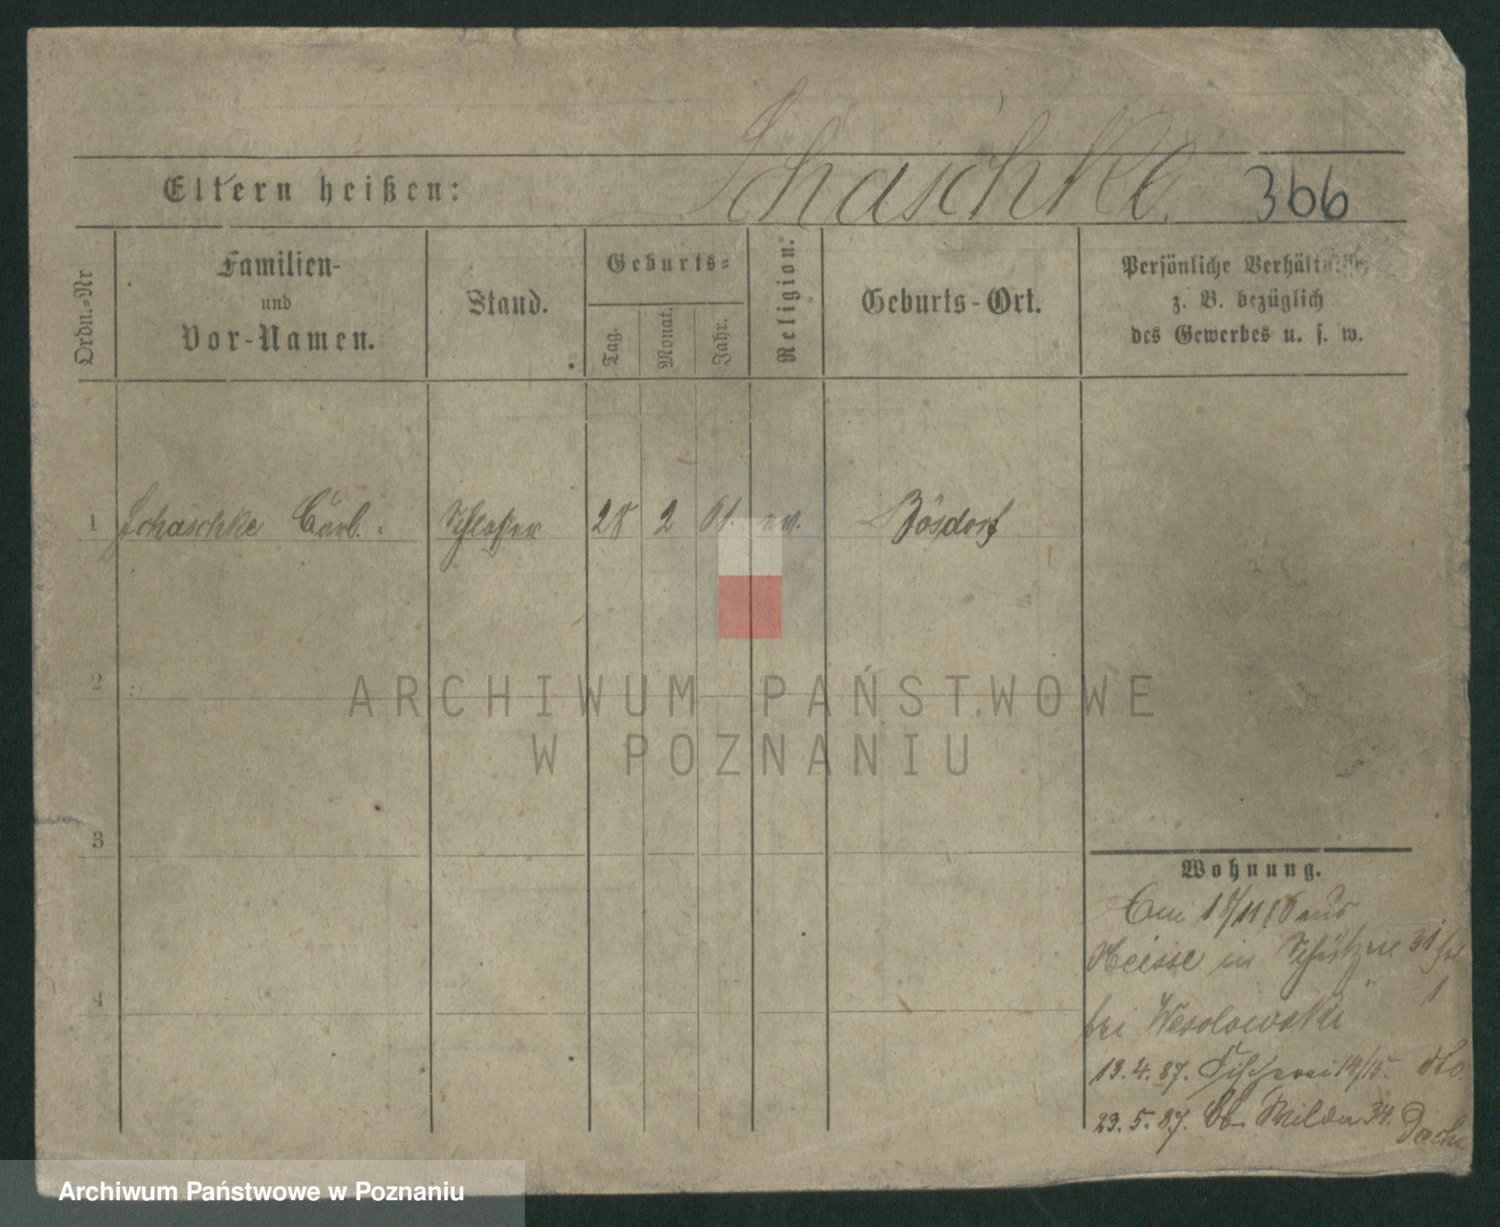 Schaschke 366
Eltern heißen:
Ordn.-Nr
Familien-
und
Vor-Namen.
Stand.
Geburts-
Tag.
Monat.
Jahr.
Religion.
Geburts-Ort.
Persönliche Verhältnisse
z. B. bezüglich
des Gewerbes u. s. w.
1 Schaschke Carl. Schlosser 28 2 61. ev. Bösdorf
2
3
4
ARCHIWUM PAŃSTWOWE
W POZNANIU
Wohnung.
Am 18/11 86 aus
Neisse in Schützstr 31
bei Wesolowski
19.4.87. Fischerei 14/15 dto.
23.5.87. Ob. Wilda 34.
Archiwum Państwowe w Poznaniu